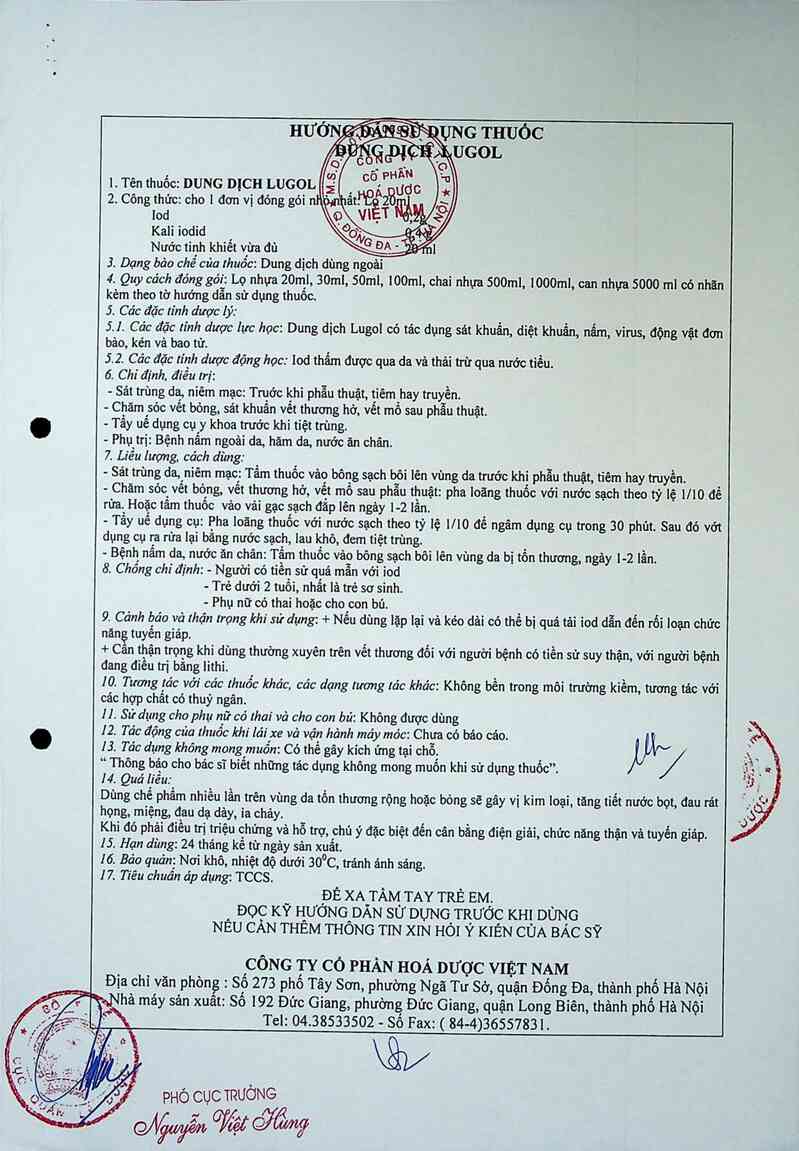 HƯỚNG DẪN SỬ DỤNG THUỐC
DUNG DỊCH LUGOL
1. Tên thuốc: DUNG DỊCH LUGOL
2. Công thức: cho 1 đơn vị đóng gói nhỏ nhất: Lọ 20ml
Iod 0,2g
Kali iodid 0,4g
Nước tinh khiết vừa đủ 20 ml
3. Dạng bào chế của thuốc: Dung dịch dùng ngoài
4. Quy cách đóng gói: Lọ nhựa 20ml, 30ml, 50ml, 100ml, chai nhựa 500ml, 1000ml, can nhựa 5000 ml có nhãn
kèm theo tờ hướng dẫn sử dụng thuốc.
5. Các đặc tính dược lý:
5.1. Các đặc tính dược lực học: Dung dịch Lugol có tác dụng sát khuẩn, diệt khuẩn, nấm, virus, động vật đơn
bào, kén và bao tử.
5.2. Các đặc tính dược động học: Iod thấm được qua da và thải trừ qua nước tiểu.
6. Chỉ định, điều trị:
- Sát trùng da, niêm mạc: Trước khi phẫu thuật, tiêm hay truyền.
- Chăm sóc vết bỏng, sát khuẩn vết thương hở, vết mổ sau phẫu thuật.
- Tẩy uế dụng cụ y khoa trước khi tiệt trùng.
- Phụ trị: Bệnh nấm ngoài da, hăm da, nước ăn chân.
7. Liều lượng, cách dùng:
- Sát trùng da, niêm mạc: Tẩm thuốc vào bông sạch bôi lên vùng da trước khi phẫu thuật, tiêm hay truyền.
- Chăm sóc vết bỏng, vết thương hở, vết mổ sau phẫu thuật: pha loãng thuốc với nước sạch theo tỷ lệ 1/10 để
rửa. Hoặc tẩm thuốc vào vải gạc sạch đắp lên ngày 1-2 lần.
- Tẩy uế dụng cụ: Pha loãng thuốc với nước sạch theo tỷ lệ 1/10 để ngâm dụng cụ trong 30 phút. Sau đó vớt
dụng cụ ra rửa lại bằng nước sạch, lau khô, đem tiệt trùng.
- Bệnh nấm da, nước ăn chân: Tẩm thuốc vào bông sạch bôi lên vùng da bị tổn thương, ngày 1-2 lần.
8. Chống chỉ định: - Người có tiền sử quá mẫn với iod
- Trẻ dưới 2 tuổi, nhất là trẻ sơ sinh.
- Phụ nữ có thai hoặc cho con bú.
9. Cảnh báo và thận trọng khi sử dụng: + Nếu dùng lặp lại và kéo dài có thể bị quá tải iod dẫn đến rối loạn chức
năng tuyến giáp.
+ Cẩn thận trọng khi dùng thường xuyên trên vết thương đối với người bệnh có tiền sử suy thận, với người bệnh
đang điều trị bằng lithi.
10. Tương tác với các thuốc khác, các dạng tương tác khác: Không bền trong môi trường kiềm, tương tác với
các hợp chất có thuỷ ngân.
11. Sử dụng cho phụ nữ có thai và cho con bú: Không được dùng
12. Tác động của thuốc khi lái xe và vận hành máy móc: Chưa có báo cáo.
13. Tác dụng không mong muốn: Có thể gây kích ứng tại chỗ.
“ Thông báo cho bác sĩ biết những tác dụng không mong muốn khi sử dụng thuốc”.
14. Quá liều:
Dùng chế phẩm nhiều lần trên vùng da tổn thương rộng hoặc bỏng sẽ gây vị kim loại, tăng tiết nước bọt, đau rát
họng, miệng, đau dạ dày, ỉa chảy.
Khi đó phải điều trị triệu chứng và hỗ trợ, chú ý đặc biệt đến cân bằng điện giải, chức năng thận và tuyến giáp.
15. Hạn dùng: 24 tháng kể từ ngày sản xuất.
16. Bảo quản: Nơi khô, nhiệt độ dưới 30⁰C, tránh ánh sáng.
17. Tiêu chuẩn áp dụng: TCCS.
ĐỂ XA TẦM TAY TRẺ EM.
ĐỌC KỸ HƯỚNG DẪN SỬ DỤNG TRƯỚC KHI DÙNG
NẾU CẦN THÊM THÔNG TIN XIN HỎI Ý KIẾN CỦA BÁC SỸ
CÔNG TY CỔ PHẦN HOÁ DƯỢC VIỆT NAM
Địa chỉ văn phòng : Số 273 phố Tây Sơn, phường Ngã Tư Sở, quận Đống Đa, thành phố Hà Nội
Nhà máy sản xuất: Số 192 Đức Giang, phường Đức Giang, quận Long Biên, thành phố Hà Nội
Tel: 04.38533502 - Số Fax: ( 84-4)36557831.
CÔNG TY
CỔ PHẦN
HOÁ DƯỢC
VIỆT NAM
Q. ĐỐNG ĐA - TP. HÀ NỘI
DƯỢC
PHÓ CỤC TRƯỞNG
Nguyễn Việt Hùng